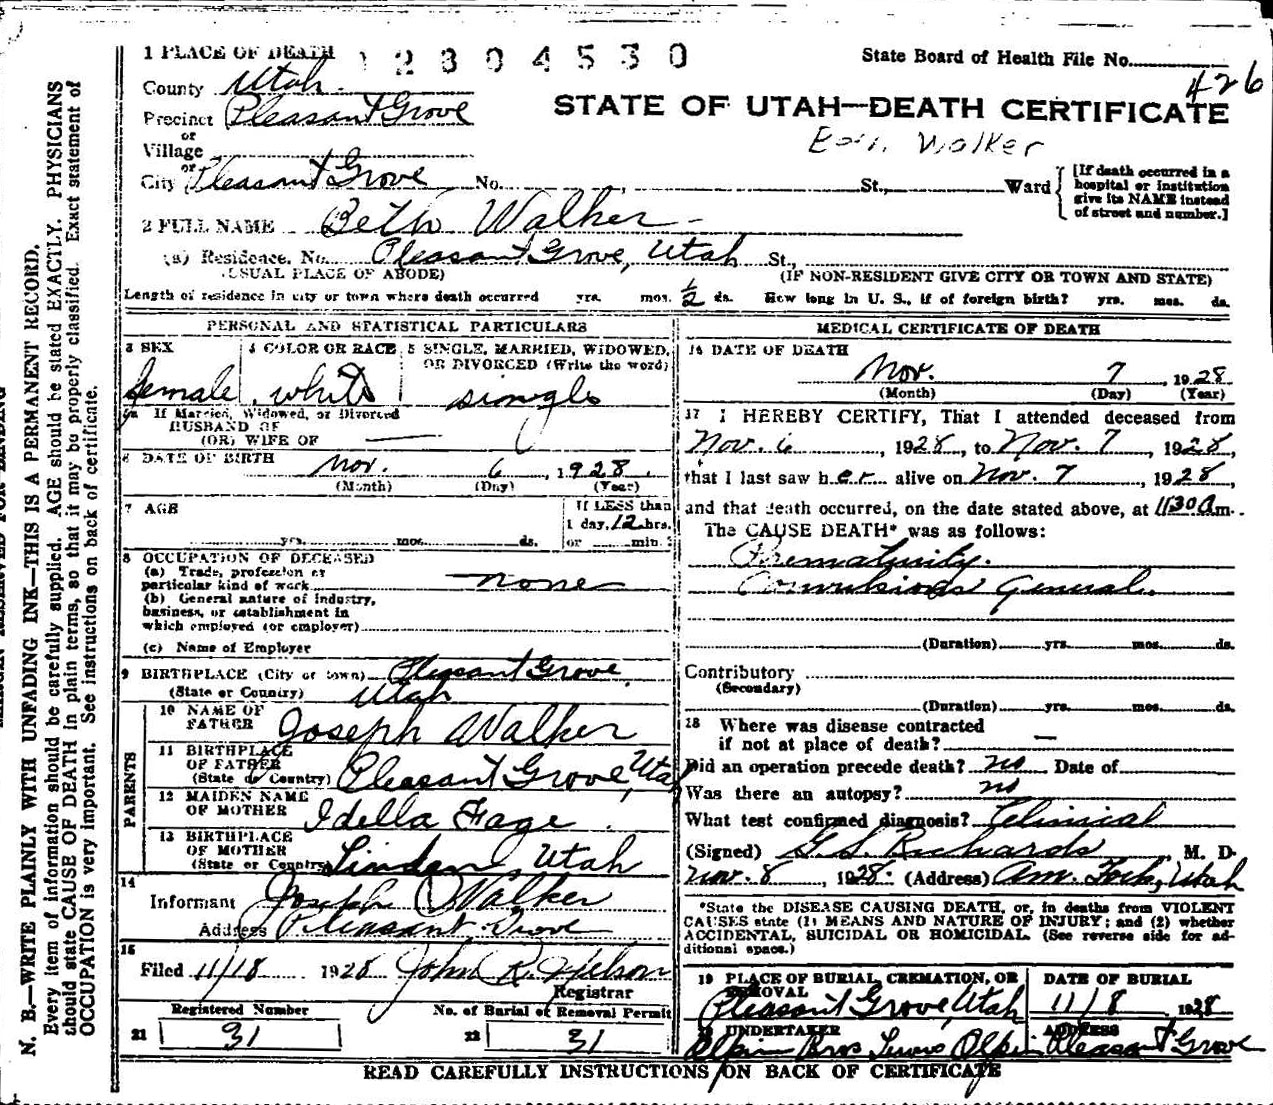 1 PLACE OF DEATH
12804530
State Board of Health File No.
426
County Utah.
Precinct Pleasant Grove
or
Village
or
City Pleasant Grove No. , St., Ward
STATE OF UTAH—DEATH CERTIFICATE
Walker
[If death occurred in a
hospital or institution
give its NAME instead
of street and number.]
2 FULL NAME Beth Walker
(a) Residence. No. Pleasant Grove, Utah St.,
(USUAL PLACE OF ABODE)
(IF NON-RESIDENT GIVE CITY OR TOWN AND STATE)
Length of residence in city or town where death occurred yrs. mos. 1/2 ds. How long in U. S., if of foreign birth? yrs. mos. ds.
PERSONAL AND STATISTICAL PARTICULARS
3 SEX
female
4 COLOR OR RACE
white
5 SINGLE, MARRIED, WIDOWED,
OR DIVORCED (Write the word)
single
5a If Married, Widowed, or Divorced
HUSBAND OF
(OR) WIFE OF —
6 DATE OF BIRTH Nov. 6, 1928.
(Month) (Day) (Year)
7 AGE
yrs. mos. ds.
If LESS than
1 day, 12 hrs.
or min.?
8 OCCUPATION OF DECEASED
(a) Trade, profession or
particular kind of work none
(b) General nature of industry,
business, or establishment in
which employed (or employer)
(c) Name of Employer
9 BIRTHPLACE (City or town) Pleasant Grove,
(State or Country) Utah
PARENTS
10 NAME OF
FATHER Joseph Walker
11 BIRTHPLACE
OF FATHER
(State or Country) Pleasant Grove, Utah
12 MAIDEN NAME
OF MOTHER Idella Fage
13 BIRTHPLACE
OF MOTHER
(State or Country) Linden, Utah
14
Informant Joseph Walker
Address Pleasant Grove
15
Filed 11/18 1928 John R.
Registrar
Registered Number
21 31
No. of Burial or Removal Permit
22 31
MEDICAL CERTIFICATE OF DEATH
16 DATE OF DEATH
Nov. 7, 1928
(Month) (Day) (Year)
17 I HEREBY CERTIFY, That I attended deceased from
Nov. 6, 1928, to Nov. 7, 1928,
that I last saw her alive on Nov. 7, 1928,
and that death occurred, on the date stated above, at 1130 a m.
The CAUSE DEATH* was as follows:
Prematurity.
Convulsions General.
(Duration) yrs. mos. ds.
Contributory
(Secondary)
(Duration) yrs. mos. ds.
18 Where was disease contracted
if not at place of death? —
Did an operation precede death? no Date of
Was there an autopsy? no
What test confirmed diagnosis? Clinical
(Signed) G.S. Richards, M. D.
Nov. 8, 1928. (Address) Am. Fork, Utah
*State the DISEASE CAUSING DEATH, or, in deaths from VIOLENT
CAUSES state (1) MEANS AND NATURE OF INJURY; and (2) whether
ACCIDENTAL, SUICIDAL OR HOMICIDAL. (See reverse side for ad-
ditional space.)
19 PLACE OF BURIAL, CREMATION, OR
REMOVAL
Pleasant Grove, Utah
DATE OF BURIAL
11/8 1928
20 UNDERTAKER
Olpin Bros Olpin
ADDRESS
Pleasant Grove
READ CAREFULLY INSTRUCTIONS ON BACK OF CERTIFICATE
N. B.—WRITE PLAINLY WITH UNFADING INK—THIS IS A PERMANENT RECORD.
Every item of information should be carefully supplied. AGE should be stated EXACTLY. PHYSICIANS
should state CAUSE OF DEATH in plain terms, so that it may be properly classified. Exact statement of
OCCUPATION is very important. See instructions on back of certificate.